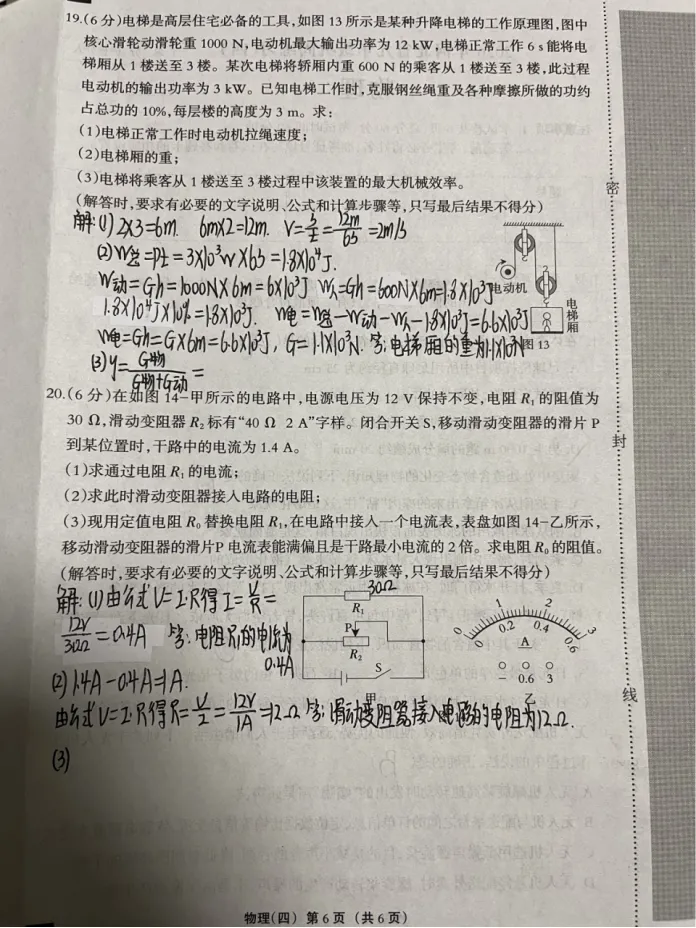 19.(6分)电梯是高层住宅必备的工具,如图13所示是某种升降电梯的工作原理图,图中
核心滑轮动滑轮重1000 N,电动机最大输出功率为12 kW,电梯正常工作6 s能将电
梯厢从1楼送至3楼。某次电梯将轿厢内重600 N的乘客从1楼送至3楼,此过程
电动机的输出功率为3 kW。已知电梯工作时,克服钢丝绳重及各种摩擦所做的功约
占总功的10%,每层楼的高度为3 m。求:
(1)电梯正常工作时电动机拉绳速度;
(2)电梯厢的重;
(3)电梯将乘客从1楼送至3楼过程中该装置的最大机械效率。
(解答时,要求有必要的文字说明、公式和计算步骤等,只写最后结果不得分)
解:(1) 2X3=6m. 6mX2=12m. V=S/t=12m/6S=2m/s
(2)W总=Pt=3X10³w X6S=1.8X10⁴J.
W动=Gh=1000NX6m=6X10³J W人=Gh=600NX6m=1.8X10³J
1.8X10⁴JX10%=1.8X10³J. W电=W总-W动-W人-1.8X10³J=6.6X10³J
W电=Gh=GX6m=6.6X10³J, G=1.1X10³N. 答:电梯厢的重为1.1X10³N
(3) y=G物/G物+G动=
电动机
电梯厢
图13
20.(6分)在如图14-甲所示的电路中,电源电压为12 V保持不变,电阻R₁的阻值为
30 Ω,滑动变阻器R₂标有“40 Ω 2 A”字样。闭合开关S,移动滑动变阻器的滑片P
到某位置时,干路中的电流为1.4 A。
(1)求通过电阻R₁的电流;
(2)求此时滑动变阻器接入电路的电阻;
(3)现用定值电阻R₀替换电阻R₁,在电路中接入一个电流表,表盘如图14-乙所示,
移动滑动变阻器的滑片P电流表能满偏且是干路最小电流的2倍。求电阻R₀的阻值。
(解答时,要求有必要的文字说明、公式和计算步骤等,只写最后结果不得分)
解:(1)由公式U=I·R得I=U/R=
12V/30Ω=0.4A 答:电阻R₁的电流为
0.4A
(2) 1.4A-0.4A=1A.
由公式U=I·R得R=U/I=12V/1A=12Ω 答:滑动变阻器接入电路的电阻为12Ω.
(3)
30Ω
R₁
P
R₂
S
甲
0 1 2 3
0 0.2 0.4 0.6
A
- 0.6 3
乙
密
封
线
物理(四) 第6页 (共6页)